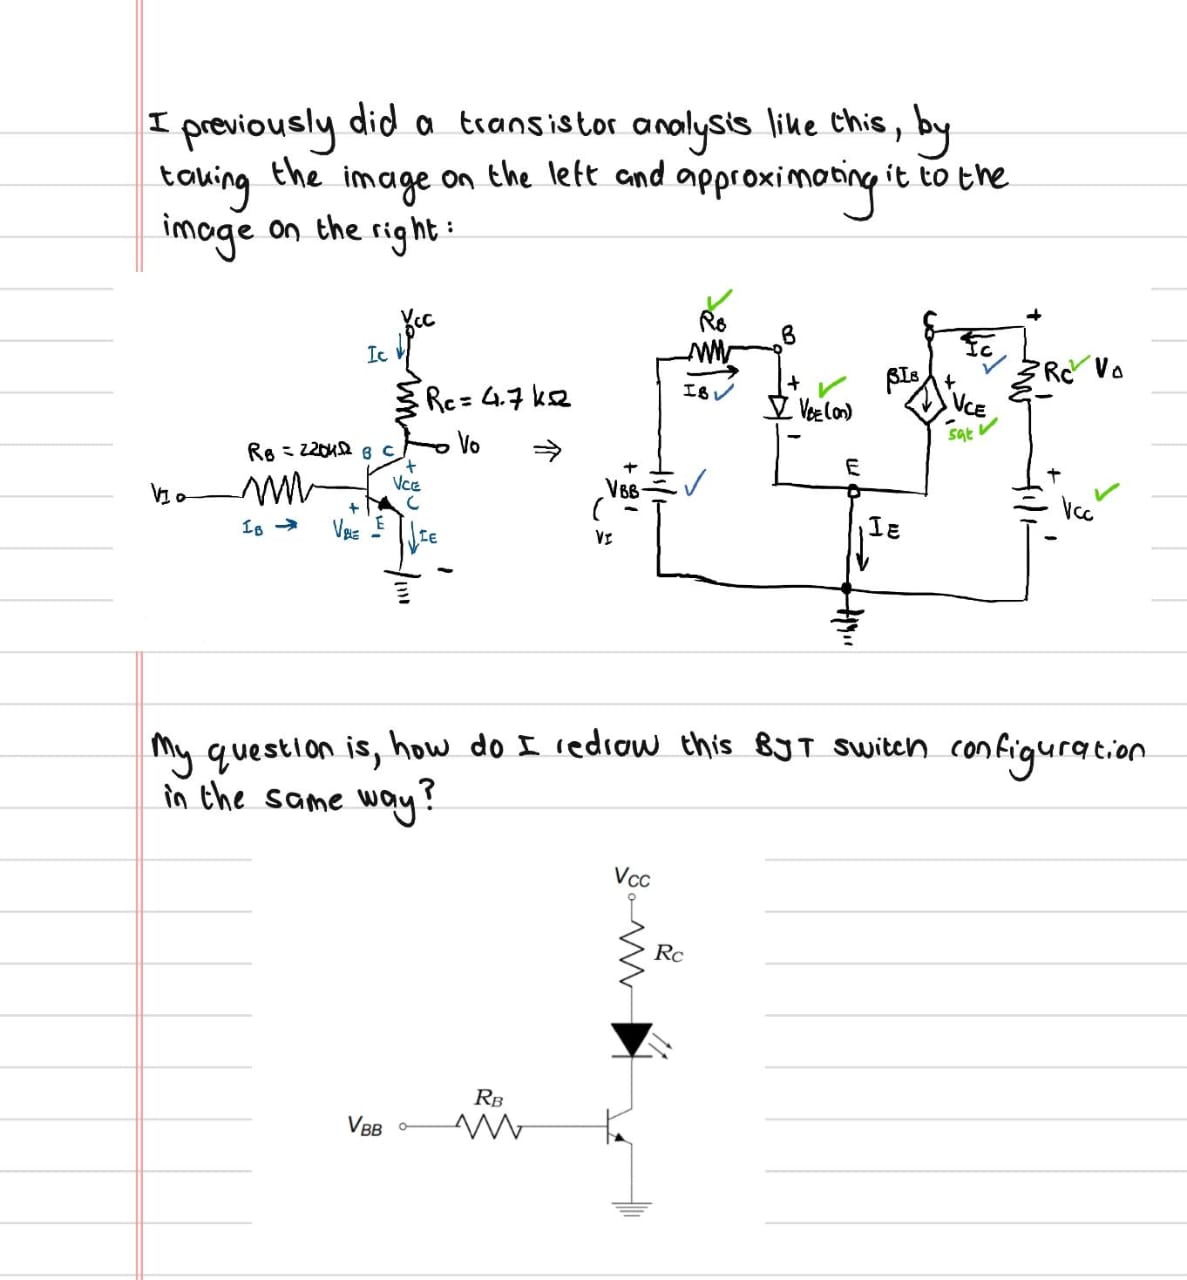 I previously did a transistor analysis like this, by
taking the image on the left and approximating it to the
image on the right:
VCC
IC
RC = 4.7 kΩ
RB = 220kΩ B C
Vo
⇒
VI
IB →
+
VCE
+
VBE
-
E
IE
-
RB
IB
B
+
VBE(on)
-
+
VBB
-
VI
C
βIB
IC
+
VCE
-
sat
E
IE
+
RC
-
Vo
+
VCC
-
My question is, how do I redraw this BJT switch configuration
in the same way?
VCC
RC
RB
VBB